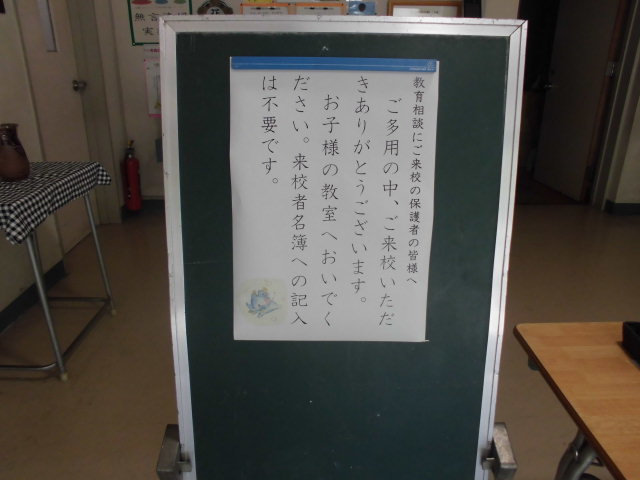 教育相談にご来校の保護者の皆様へ
ご多用の中、ご来校いただ
きありがとうございます。
お子様の教室へおいでく
ださい。来校者名簿への記入
は不要です。
無言
実